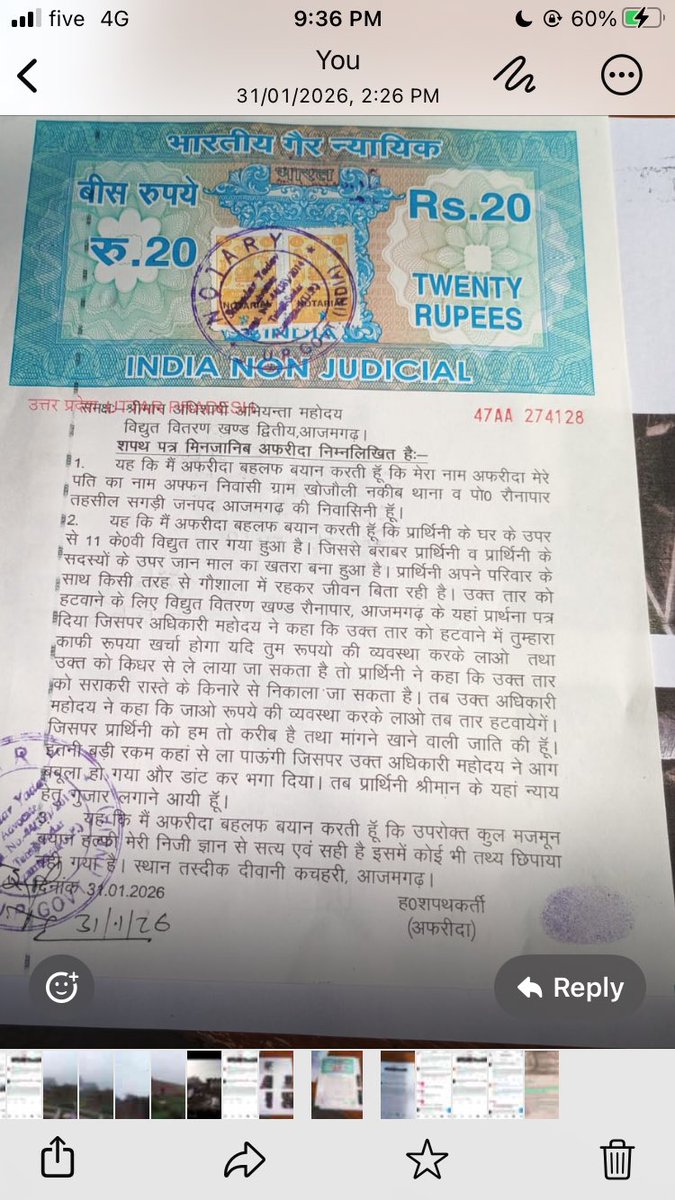 five 4G
9:36 PM
60%
You
31/01/2026, 2:26 PM
भारतीय गैर न्यायिक
भारत
बीस रुपये
रु.20
Rs.20
TWENTY
RUPEES
NOTARY
(INDIA)
NOTARIAL NOTARIAL
INDIA
INDIA NON JUDICIAL
उत्तर प्रदेश UTTAR PRADESH
47AA 274128
समक्ष श्रीमान अधिशाषी अभियन्ता महोदय
विद्युत वितरण खण्ड द्वितीय,आजमगढ़।
शपथ पत्र मिनजानिब अफरीदा निम्नलिखित है:–
1. यह कि मैं अफरीदा बहलफ बयान करती हूँ कि मेरा नाम अफरीदा मेरे
पति का नाम अफ्फन निवासी ग्राम खोजौली नकीब थाना व पो0 रौनापार
तहसील सगड़ी जनपद आजमगढ़ की निवासिनी हूँ।
2. यह कि मैं अफरीदा बहलफ बयान करती हूँ कि प्रार्थिनी के घर के उपर
से 11 के0वी विद्युत तार गया हुआ है। जिससे बराबर प्रार्थिनी व प्रार्थिनी के
सदस्यों के उपर जान माल का खतरा बना हुआ है। प्रार्थिनी अपने परिवार के
साथ किसी तरह से गौशाला में रहकर जीवन बिता रही है। उक्त तार को
हटवाने के लिए विद्युत वितरण खण्ड रौनापार, आजमगढ़ के यहां प्रार्थना पत्र
दिया जिसपर अधिकारी महोदय ने कहा कि उक्त तार को हटवाने में तुम्हारा
काफी रूपया खर्चा होगा यदि तुम रूपयो की व्यवस्था करके लाओ तथा
उक्त को किधर से ले लाया जा सकता है तो प्रार्थिनी ने कहा कि उक्त तार
को सराकरी रास्ते के किनारे से निकाला जा सकता है। तब उक्त अधिकारी
महोदय ने कहा कि जाओ रूपये की व्यवस्था करके लाओ तब तार हटवायेगें।
जिसपर प्रार्थिनी को हम तो करीब है तथा मांगने खाने वाली जाति की हूँ।
इतनी बड़ी रकम कहां से ला पाऊंगी जिसपर उक्त अधिकारी महोदय ने आग
बबूला हो गया और डांट कर भगा दिया। तब प्रार्थिनी श्रीमान के यहां न्याय
हेतु गुजार लगाने आयी हूँ।
यह कि मैं अफरीदा बहलफ बयान करती हूँ कि उपरोक्त कुल मजमून
बयान हल्फी मेरी निजी ज्ञान से सत्य एवं सही है इसमें कोई भी तथ्य छिपाया
नही गया है। स्थान तस्दीक दीवानी कचहरी, आजमगढ़।
दिनांक 31.01.2026
31/1/26
ह0शपथकर्ती
(अफरीदा)
Reply